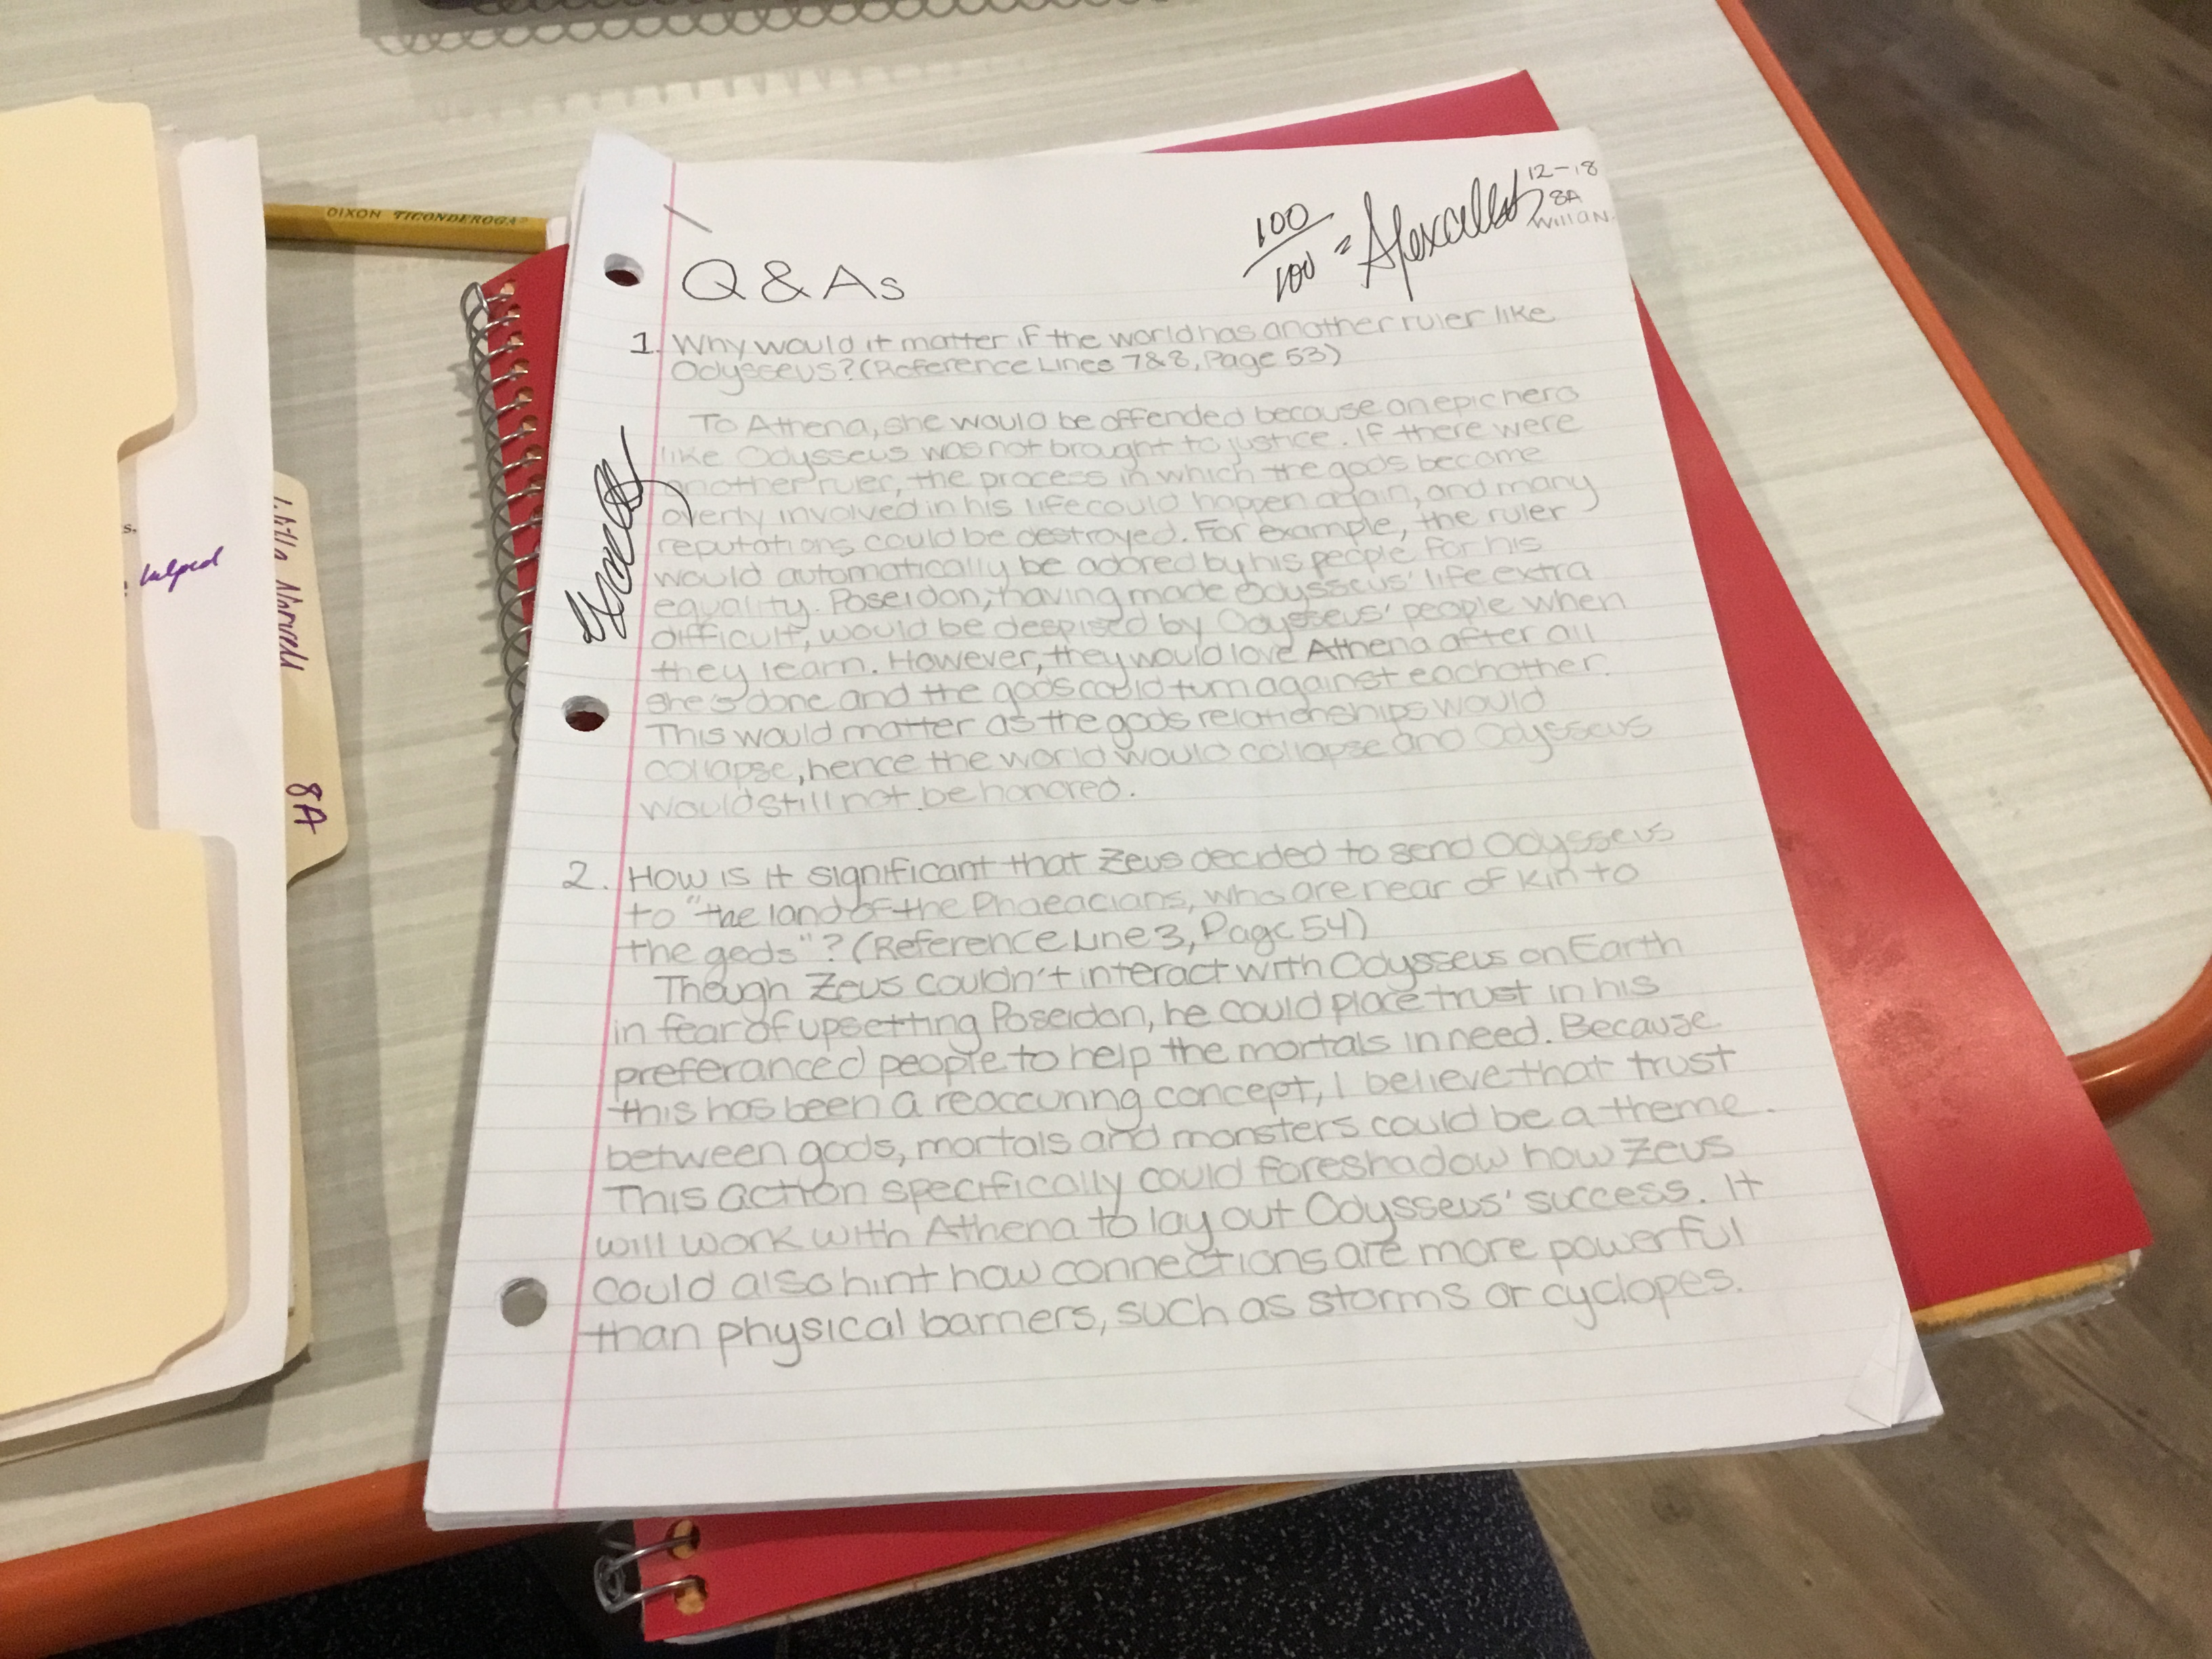 DIXON TICONDEROGA
12-18
8A
Willa N.
100/100 =
Q & As
1. Why would it matter if the world has another ruler like
Odysseus? (Reference Lines 7&8, Page 53)
To Athena, she would be offended because an epic hero
like Odysseus was not brought to justice. If there were
another ruler, the process in which the gods become
overly involved in his life could happen again, and many
reputations could be destroyed. For example, the ruler
would automatically be adored by his people for his
equality. Poseidon, having made Odysseus' life extra
difficult, would be despised by Odysseus' people when
they learn. However, they would love Athena after all
she's done and the gods could turn against eachother.
This would matter as the gods relationships would
collapse, hence the world would collapse and Odysseus
would still not be honored.
2. How is it significant that Zeus decided to send Odysseus
to "the land of the Phaeacians, who are near of kin to
the gods"? (Reference Line 3, Page 54)
Though Zeus couldn't interact with Odysseus on Earth
in fear of upsetting Poseidon, he could place trust in his
preferanced people to help the mortals in need. Because
this has been a reoccurring concept, I believe that trust
between gods, mortals and monsters could be a theme.
This action specifically could foreshadow how Zeus
will work with Athena to lay out Odysseus' success. It
could also hint how connections are more powerful
than physical barriers, such as storms or cyclopes.
s.
helped
8A